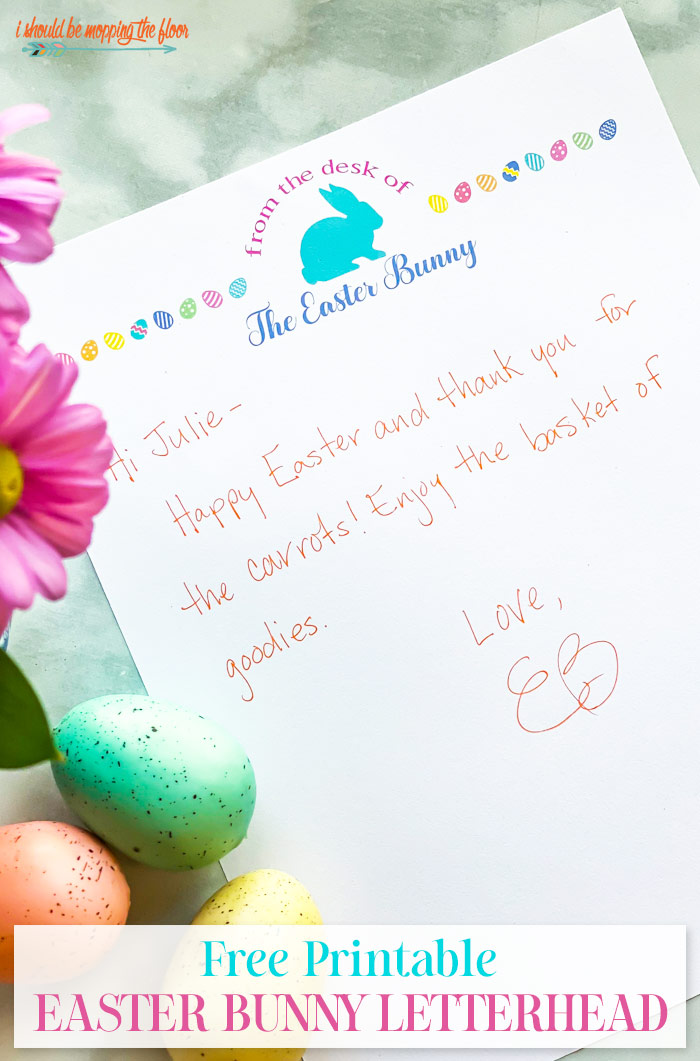 i should be mopping the floor
from the desk of
The Easter Bunny
Hi Julie -
Happy Easter and thank you for
the carrots! Enjoy the basket of
goodies.
Love,
EB
Free Printable
EASTER BUNNY LETTERHEAD